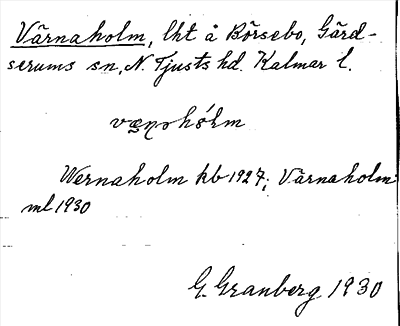 Värnaholm, lht å Börsebo, Gärd-
serums sn, N. Tjusts hd. Kalmar l.
væ̣ṇahólm
Wernaholm kb 1927; Värnaholm
ml 1930
G. Granberg 1930